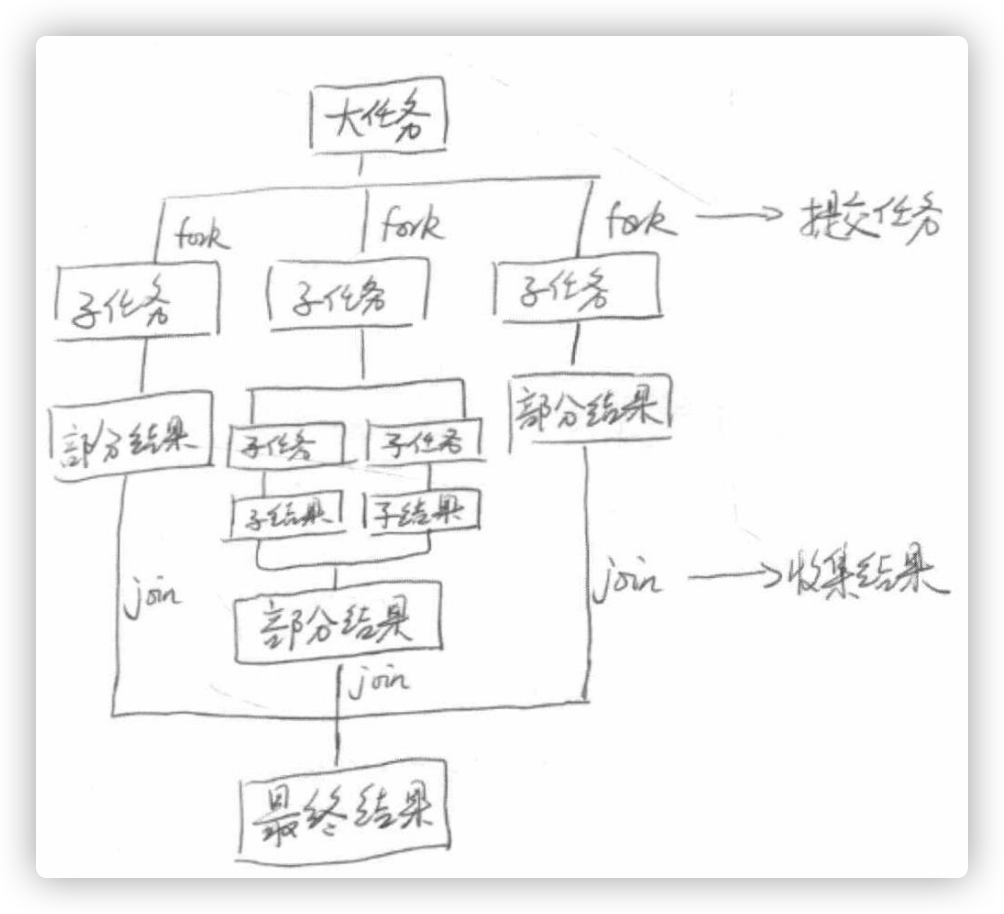 大任务
fork
fork
fork
提交任务
子任务
子任务
子任务
部分结果
子任务
子任务
部分结果
子结果
子结果
join
部分结果
join
收集结果
join
最终结果